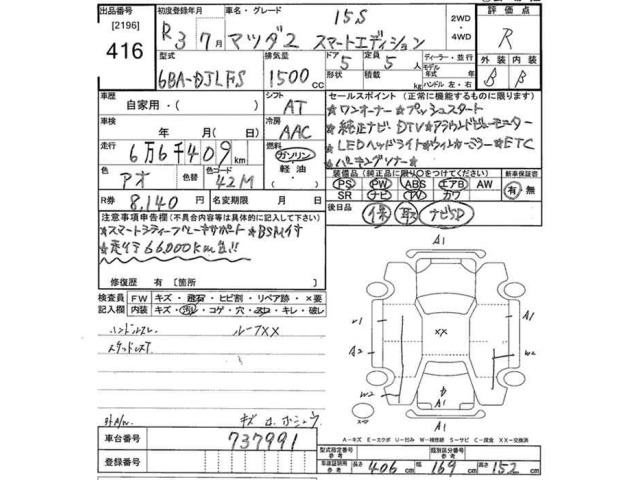 出品番号 初度登録年月 車名・グレード 15S 2WD・4WD 評価点
[2196]
416 R3 7月 マツダ2 スマートエディション R
型式 排気量 ドア 形状 5 定員 積載 5人 kg ディーラー・並行 モデル年式 年式 ハンドル 左・右 外装 内装
6BA-DJLFS 1500cc B B
車歴 自家用・( ) シフト AT セールスポイント(正常に機能するものに限ります)
★ワンオーナー★プッシュスタート
車検 年 月( 日) 冷房 AAC ★純正ナビ DTV★アラウンドビューモニター
走行 6万6千409km 燃料 ガソリン・軽油・ ★LEDヘッドライト★ウィンカーミラー★ETC
★パーキングソナー★
色 アオ 色替 色コード 42M 装備品(純正品に限り○をつけてください) 新車保証書
PS PW ABS エアB AW 有 無
SR ナビ TV カワ
R券 8,140円 名変期限 月 日 後日品 保 取 ナビSD
注意事項申告欄(不具合内容等は具体的に記入して下さい)
★スマートシティーブレーキサポート ★BSM付
★走行66,000km台!!
修復歴 有[箇所 ]
検査員記入欄 FW キズ・飛石・ヒビ割・リペア跡・×要
内装 キズ・汚レ・コゲ・穴・スレ・キレ・破レ
ハンドルスレ ルーフXX
ステッドレスT
外A/W キズ
A1
A1
A1
A2
XX
W2
A1
A1
A-キズ E-エクボ U-凹み W-補修跡 S-サビ C-腐食 XX-交換済
車台番号 737991
登録番号 型式指定番号 参考 類別区分番号 参考
車庫証明用 参考 長さ 406cm 幅 169cm 高さ 152cm